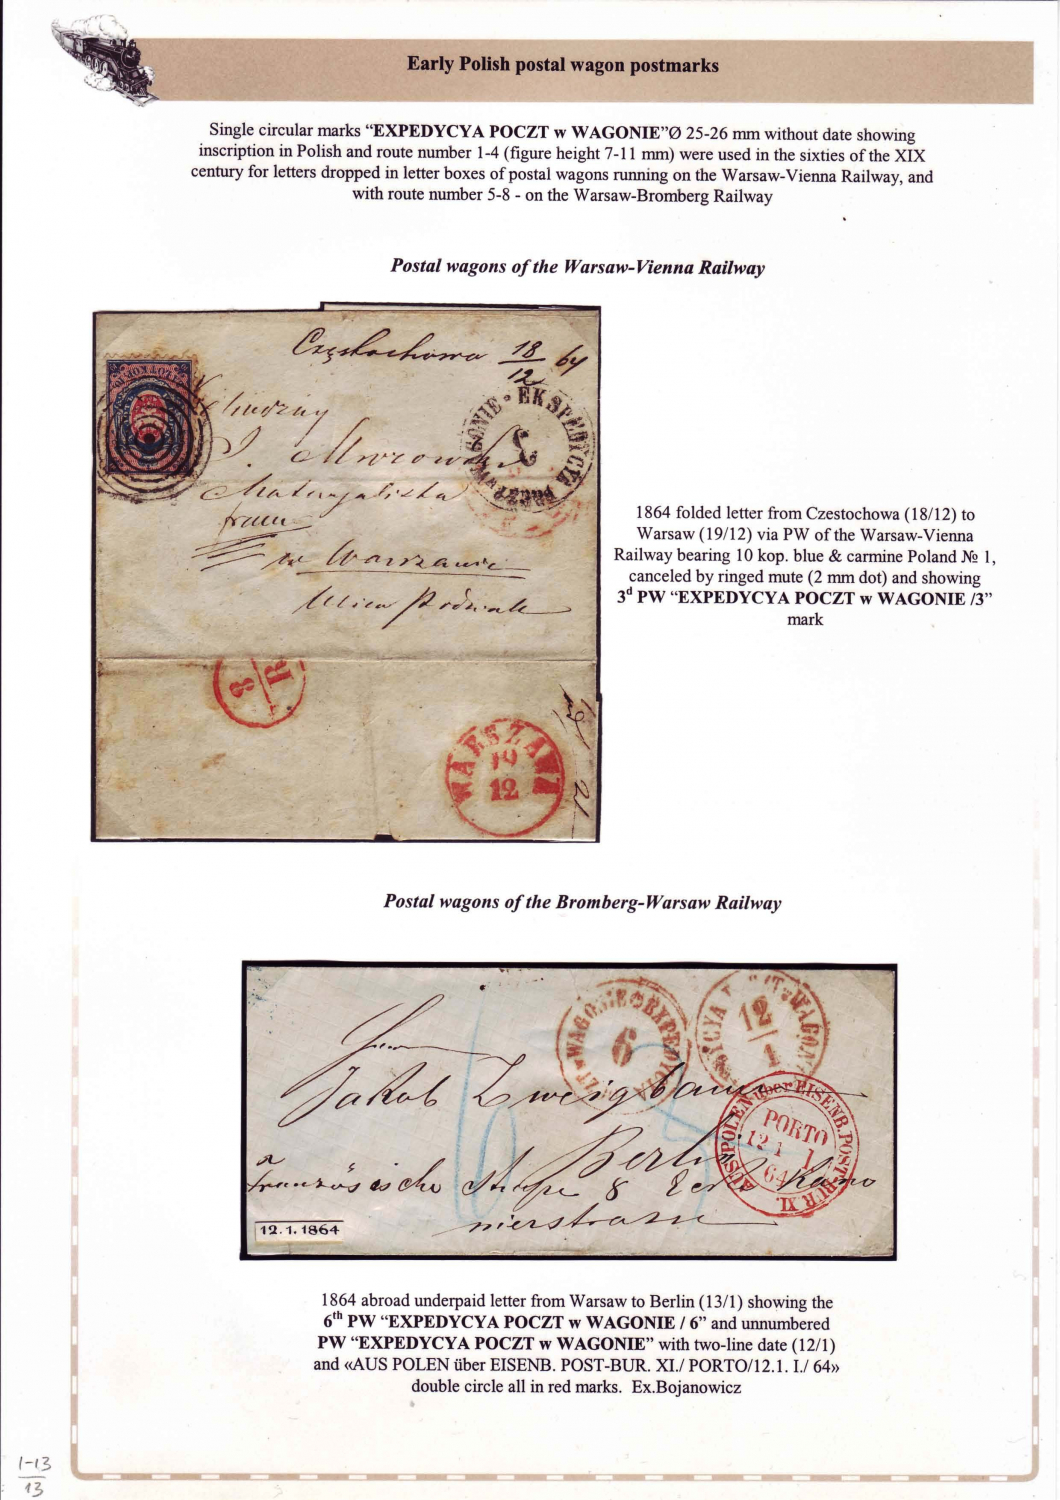 Early Polish postal wagon postmarks
Single circular marks “EXPEDYCYA POCZT w WAGONIE”Ø 25-26 mm without date showing
inscription in Polish and route number 1-4 (figure height 7-11 mm) were used in the sixties of the XIX
century for letters dropped in letter boxes of postal wagons running on the Warsaw-Vienna Railway, and
with route number 5-8 - on the Warsaw-Bromberg Railway
Postal wagons of the Warsaw-Vienna Railway
Częstochowa 18/12 64
EKSPEDYCYA POCZT w WAGONIE
3
J. Mrozowski
Materyalista
franco
w Warszawie
Ulica Podwale
8
R
WARSZAWA
19
12
1864 folded letter from Czestochowa (18/12) to
Warsaw (19/12) via PW of the Warsaw-Vienna
Railway bearing 10 kop. blue & carmine Poland № 1,
canceled by ringed mute (2 mm dot) and showing
3d PW “EXPEDYCYA POCZT w WAGONIE /3”
mark
Postal wagons of the Bromberg-Warsaw Railway
ZT w WAGONIE EXPEDYCIA
6
DYCYA P T w WAGON
12
1
Herrn
Jakob Zweigbaum
Berlin
französische Straße 8 Ecke Kano
nierstrasse
AUS POLEN über EISENB. POST-BUR. XI.
PORTO
12 1 1
64
6
12.1.1864
1864 abroad underpaid letter from Warsaw to Berlin (13/1) showing the
6th PW “EXPEDYCYA POCZT w WAGONIE / 6” and unnumbered
PW “EXPEDYCYA POCZT w WAGONIE” with two-line date (12/1)
and «AUS POLEN über EISENB. POST-BUR. XI./ PORTO/12.1. I./ 64»
double circle all in red marks. Ex.Bojanowicz
1-13
13